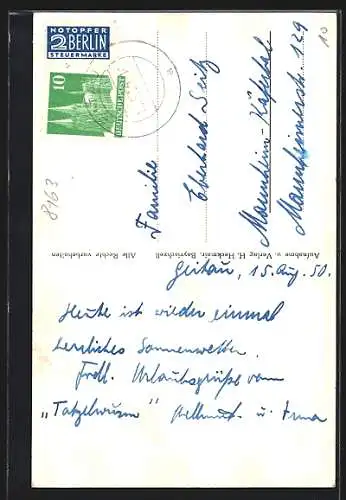 NOTOPFER
2 BERLIN
STEUERMARKE
10
DEUTSCHE POST
Familie
Eberhard Seitz
Mannheim-Käfertal
Mannheimerstr. 129
10
8163
Aufnahme u. Verlag H. Bayrischzell
Alle Rechte vorbehalten
Geitau, 15. Aug. 50.
Heute ist wieder einmal
herrliches Sonnenwetter.
Frdl. Urlaubsgrüße vom
„Tatzelwurm" Hellmut u. Irma